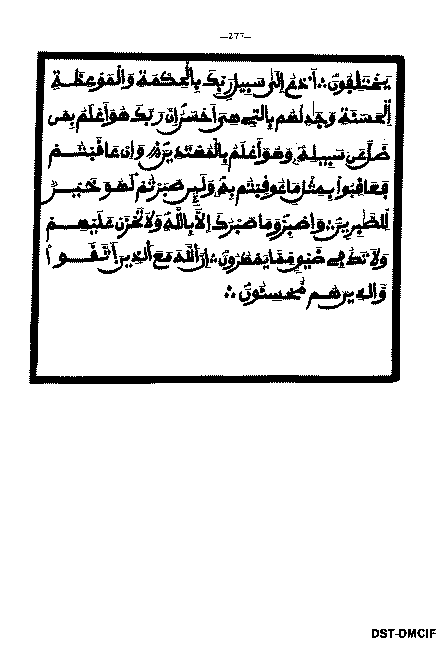 —277—
يختلفون ∴ ادع إلى سبيل ربك بالحكمة والموعظة
الحسنة وجدلهم بالتي هي أحسن إن ربك هو أعلم بمن
ضل عن سبيله وهو أعلم بالمهتدين وإن عاقبتم
فعاقبوا بمثل ما عوقبتم به ولين صبرتم لهو خير
للصبرين ∴ واصبر وما صبرك إلا بالله ولا تحزن عليهم
ولا تك في ضيق مما يمكرون ∴ إن الله مع الذين اتقوا
والذين هم محسنون ∴
DST-DMCIF